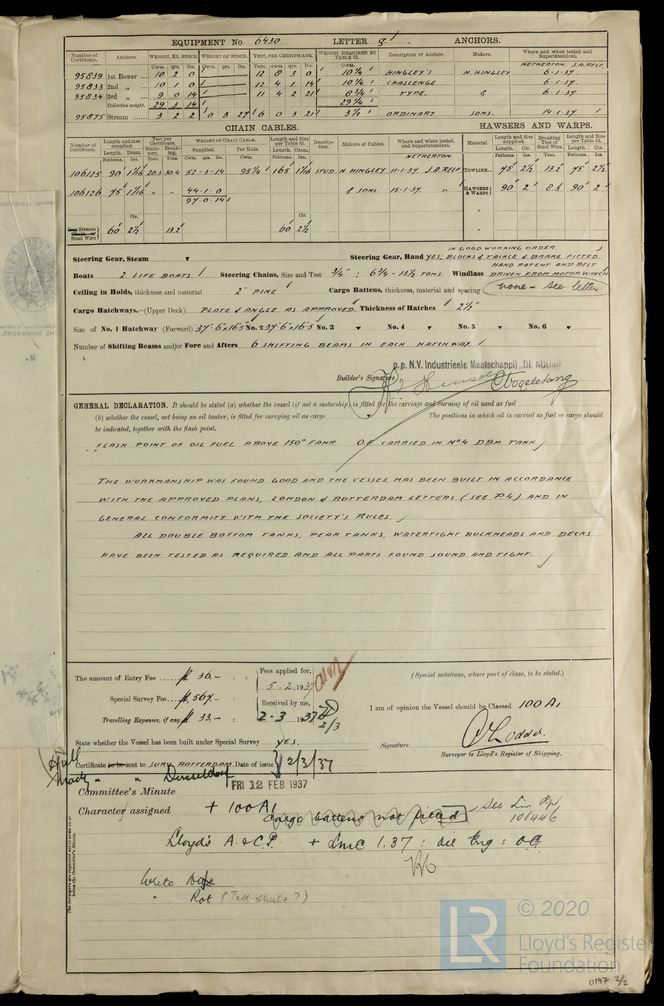 EQUIPMENT No 6430 LETTER ANCHORS.
Number of Certificate. Anchors. WEIGHT, EX. STOCK. WEIGHT OF STOCK. TEST, PER CERTIFICATE. WEIGHT REQUIRED BY TABLE Description of Anchor. Makers. Where and when tested and Superintendent.
Cwts. qrs. lbs. Cwts. qrs. lbs. Tons. cwts. qrs. lbs. Cwts. NETHERTON, J.A. RELF.
95839 1st Bower 10 2 0 12 8 3 0 10¼ HINGLEY'S N. HINGLEY 6-1-37.
95833 2nd „ 10 1 0 12 4 1 14 10¼ CHALLENGE 6-1-37.
95834 3rd „ 9 0 14 11 4 2 21 8¾ TYPE. & 6-1-37.
Collective weight. 29 3 14 29¼
95875 Stream 3 2 2 0 3 27 6 0 3 21 3½ ORDINARY SONS. 14-1-37
CHAIN CABLES. HAWSERS AND WARPS.
Number of Certificate. Length and size supplied. Test per Certificate. WEIGHT OF CHAIN CABLE. Length and size per Table Description. Makers of Cables. Where and when tested, and Superintendent. Material Length and Size supplied. Breaking Test of Steel Wire. Length and Size per Table
Fathoms. Ins. Supplied. Per Rule. NETHERTON.
106125 90 52-3-14 95¼ 165 STUD N. HINGLEY 11-1-37. J.A. RELF TOWLINE 75 2½ 13.2 75 2½
106126 75 44-1-0 & SONS 15-1-37 „ HAWSERS & WARPS 90 2 90 2
97-0-14
Stream Steel Wire 60 2½ 13.2 60 2½
IN GOOD WORKING ORDER.
Steering Gear, Steam Steering Gear, Hand YES; BLOCKS & TACKLE & BRAKE FITTED.
HAND PATENT AND BELT
Boats 2 LIFE BOATS Steering Chains, Size and Test ¾" : TONS. Windlass DRIVEN FROM MOTOR WINCH
Ceiling in Holds, thickness and material 2" PINE Cargo Battens, thickness, material and spacing none - see letter
Cargo Hatchways.—(Upper Deck) PLATE & ANGLE AS APPROVED. Thickness of Hatches 2½"
Size of No. 1 Hatchway (Forward) 37'6"x16'5" No. 2 37'6"x16'5" No. 3 No. 4 No. 5 No. 6
Number of Shifting Beams and/or Fore and Afters 6 SHIFTING BEAMS IN EACH HATCHWAY
p.p. N.V. Industrieele Maatschappij „DE NOORD"
Builder's Signature
GENERAL DECLARATION. It should be stated (a) whether the vessel (if not a motorship) is fitted for the carriage and burning of oil used as fuel
(b) whether the vessel, not being an oil tanker, is fitted for carrying oil as cargo The positions in which oil is carried as fuel or cargo should
be indicated, together with the flash point.
FLASH POINT OF OIL FUEL ABOVE 150° FAHR. OIL CARRIED IN No 4 DBM TANK
THE WORKMANSHIP WAS FOUND GOOD AND THE VESSEL HAS BEEN BUILT IN ACCORDANCE
WITH THE APPROVED PLANS, LONDON & ROTTERDAM LETTERS (SEE P.4) AND IN
GENERAL CONFORMITY WITH THE SOCIETY'S RULES.
ALL DOUBLE BOTTOM TANKS, PEAK TANKS, WATERTIGHT BULKHEADS AND DECKS
HAVE BEEN TESTED AS REQUIRED AND ALL PARTS FOUND SOUND AND TIGHT.
The amount of Entry Fee 36.- Fees applied for, (Special notations, where part of class, to be stated.)
5.2.1937
Special Survey Fee 567.- Received by me, I am of opinion the Vessel should be Classed 100 A1
Travelling Expenses, if any 33.- 2.3.1937 2/3
State whether the Vessel has been built under Special Survey YES. Signature
Surveyor to Lloyd's Register of Shipping.
Hull Certificate to be sent to SURV. ROTTERDAM. Date of issue 2/3/37
Mach'y „ „ Dusseldorf FRI 12 FEB 1937
Committee's Minute
Character assigned + 100A1
Cargo battens not fitted See Lin Rpt 100446
Lloyd's A.&C.P. + LMC 1.37 : oil Eng : OG
Write
„ Rot (Test sheets?)
LR © 2020
Lloyd's Register
Foundation
0197 2/2